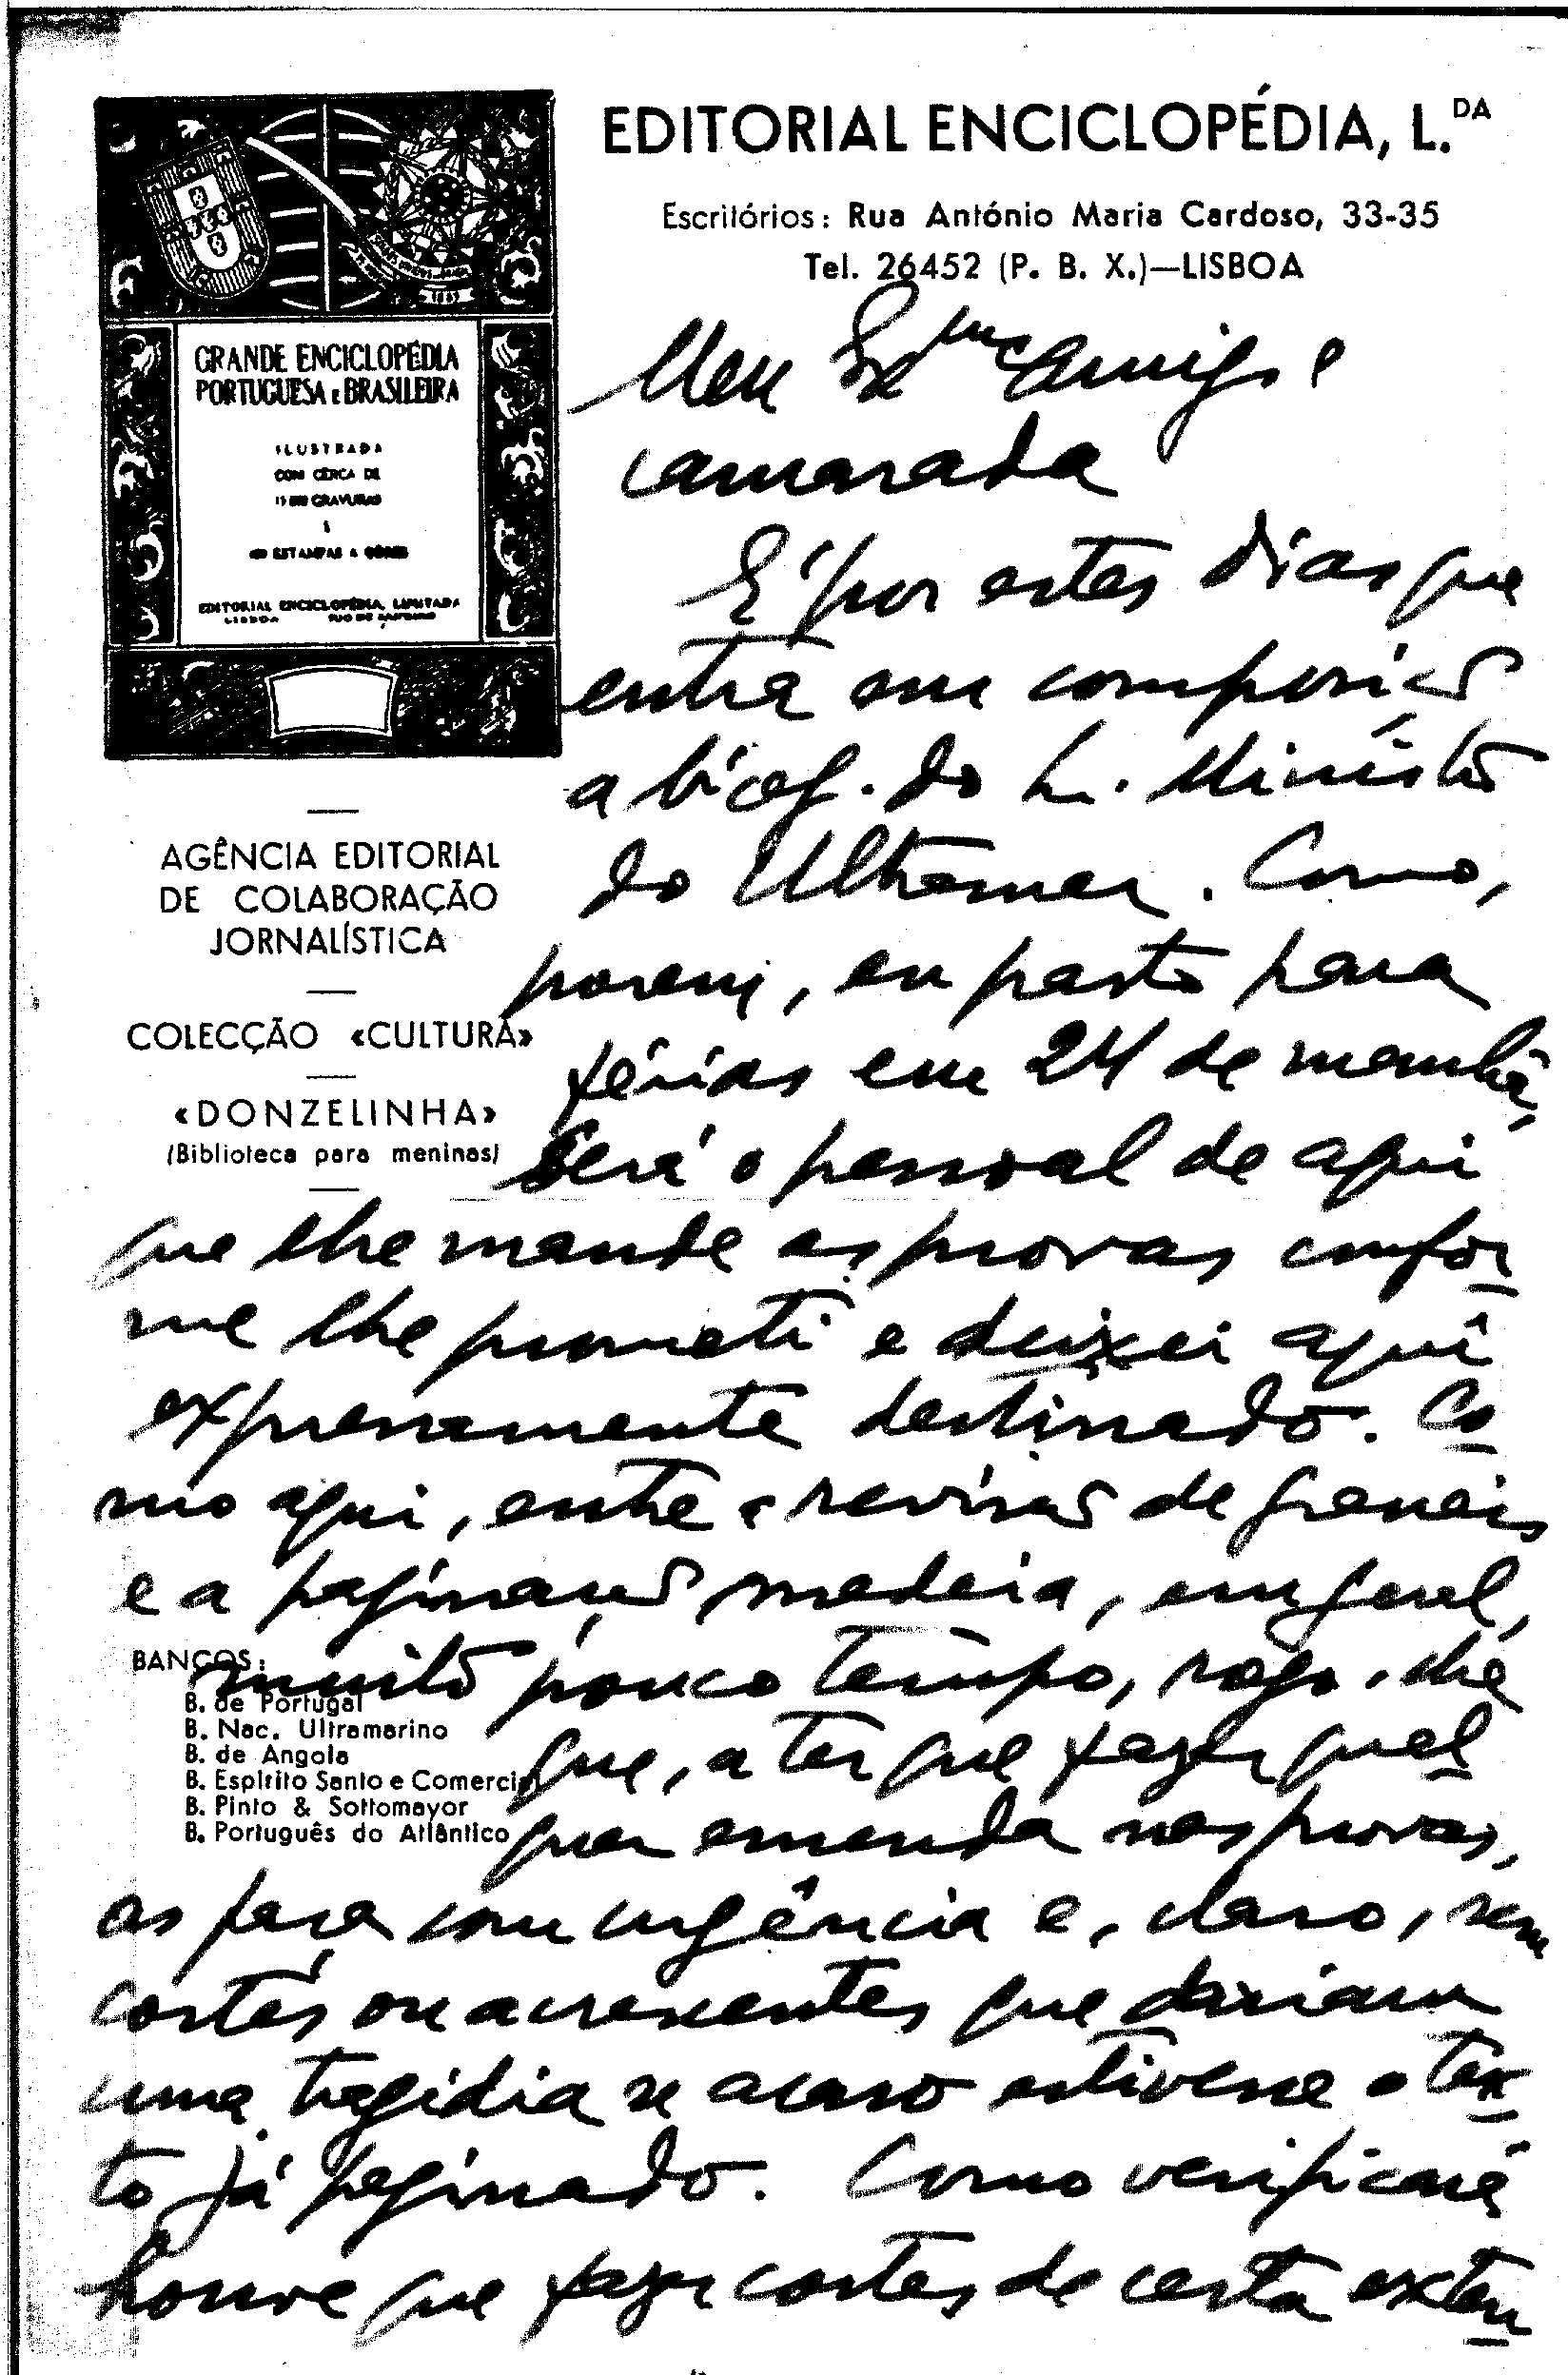 EDITORIAL ENCICLOPÉDIA, L.DA
Escritórios: Rua António Maria Cardoso, 33-35
Tel. 26452 (P. B. X.)—LISBOA
GRANDE ENCICLOPÉDIA
PORTUGUESA E BRASILEIRA
ILUSTRADA
COM CÊRCA DE
15 000 GRAVURAS
E
400 ESTAMPAS A CÔRES
EDITORIAL ENCICLOPÉDIA, LIMITADA
LISBOA RIO DE JANEIRO
AGÊNCIA EDITORIAL
DE COLABORAÇÃO
JORNALÍSTICA
COLECÇÃO «CULTURA»
«DONZELINHA»
(Biblioteca para meninas)
Meu Exmo amigo e
camarada
É por estes dias que
entra em composição
a biog. do Sr. Ministro
do Ultramar. Como,
porém, eu parto para
férias em 24 de manhã,
será o pessoal de aqui
que lhe mande as provas confor-
me lhe prometi e deixei aqui
expressamente destinado. Co-
mo aqui, entre a revisão de graneis
e a paginação, medeia, em geral,
muito pouco tempo, rogo-lhe
que, a ter que fazer qual-
quer emenda nas provas,
as faça com urgência e, claro, sem
cortes ou acrescentes que dariam
uma tragédia se acaso estivesse o tex-
to já paginado. Como verificará
houve que fazer cortes de certa exten-
BANCOS:
B. de Portugal
B. Nac. Ultramarino
B. de Angola
B. Espírito Santo e Comercial
B. Pinto & Sottomayor
B. Português do Atlântico